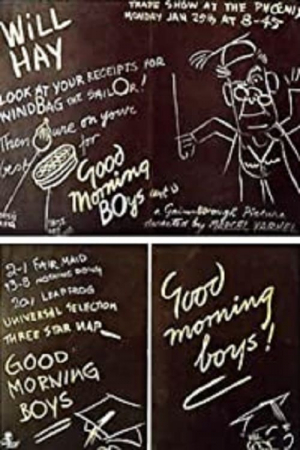 WiLL
HAY
TRADE SHOW AT THE PHOENIX
MONDAY JAN 25th AT 8-45
LOOK AT YOUR RECEIPTS FOR
WINDBAG THE SAILOR!
Then
on your
best for
Good
Morning
BOys
a Gainsborough Picture
directed by MARCEL VARNEL
2-1 FAIR MAID
20/1 LEAPFROG
UNIVERSAL SELECTION
THREE STAR NAP
GOOD
MORNING
BOYS
Good
morning
boys!